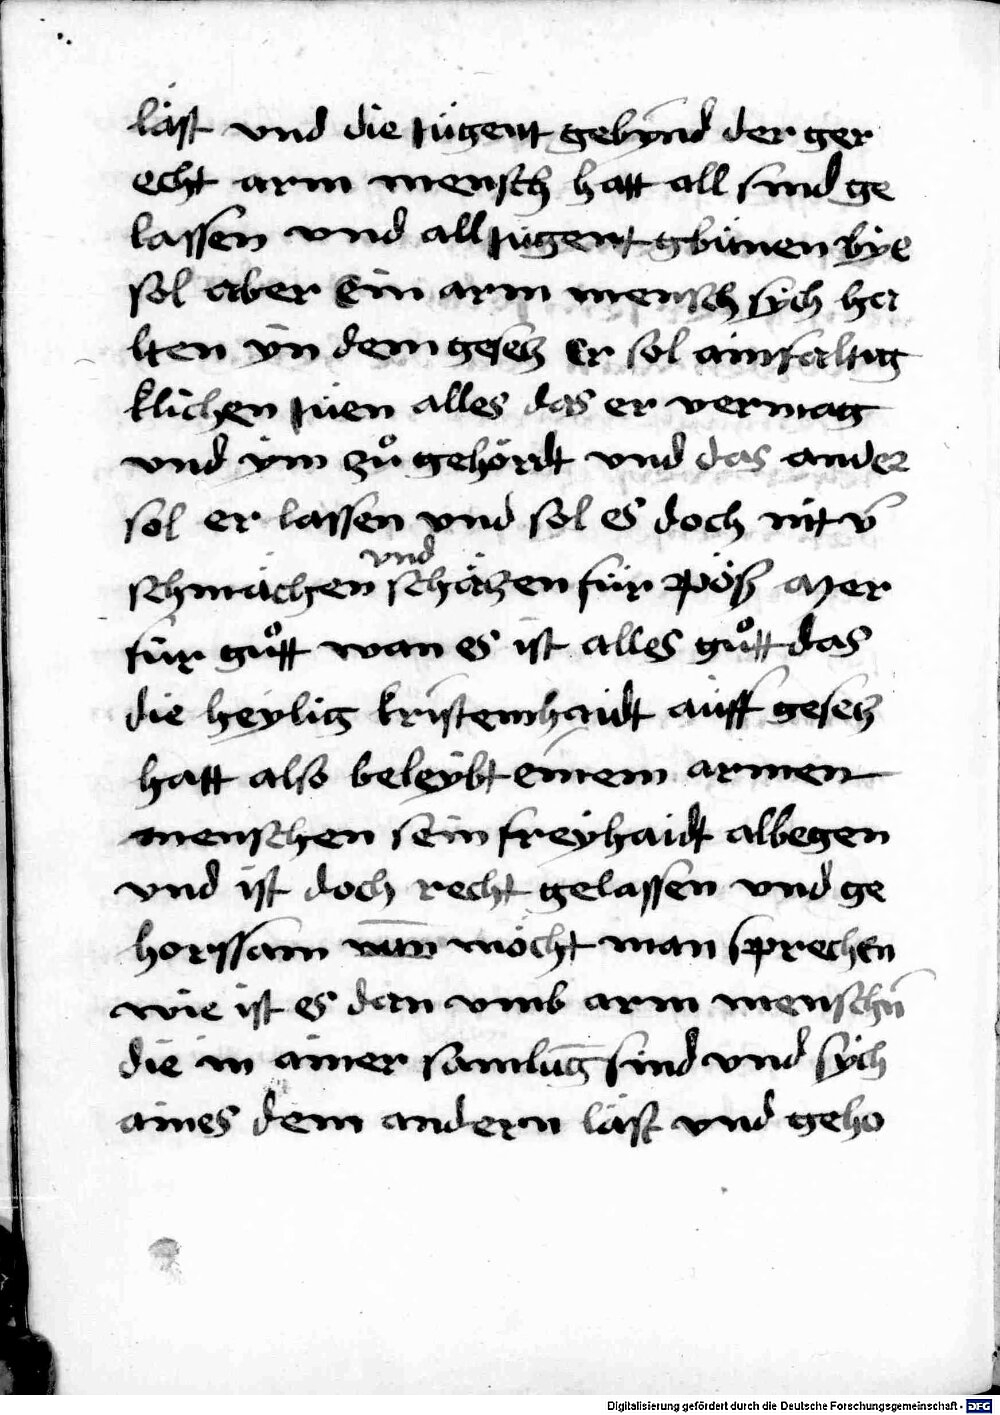 läst vnd die tügent gebynd der ger
echt arm mensch hatt all sind ge
lassen vnd all tügent gbünen bye
sol aber ein arm mensch sych hal
lten yn dem gesetz Er sol ainfaltig
klichen tüen alles das er vermag
vnd ym zů gehördt vnd das ander
sol er lassen vnd sol es doch nit v̄
schmächen vnd schäczen für pöß Mer
für gůtt wan es ist alles gůtt das
die heylig kristemhaidt aüff gesetz
hatt also beleybt einem armen
menschen sein freyhaidt albegen
vnd ist doch recht gelassen vnd ge
horssam nūn möcht man sprechen
wie ist es dan vmb arm menschn̄
die in ainer samlūg sind vnd sych
aines dem andern läst vnd geho
Digitalisierung gefördert durch die Deutsche Forschungsgemeinschaft - DFG